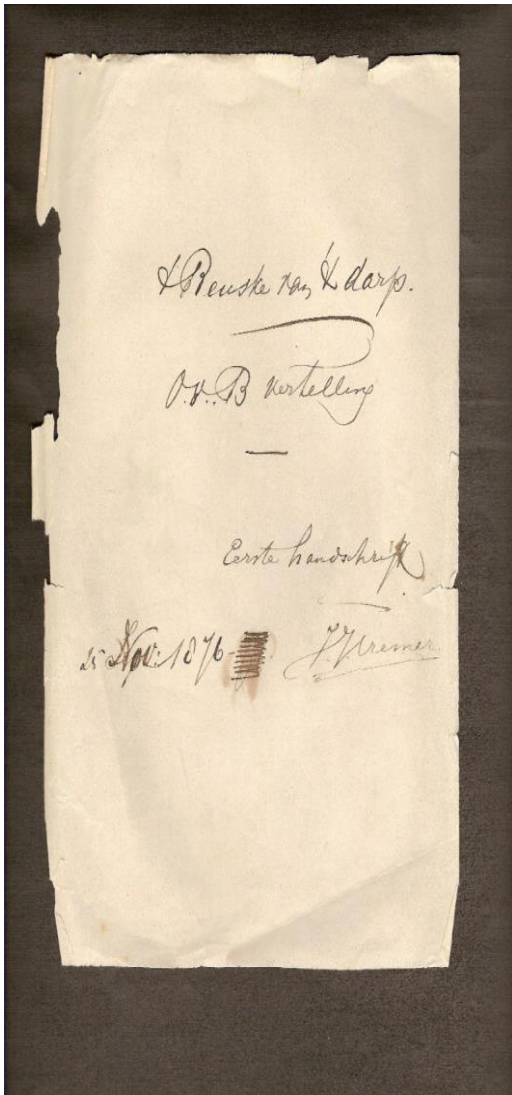 't Reuske van 't darp.
O.v.. B vertelling
Eerste handschrift
25 Nov: 1876
J.J. Cremer